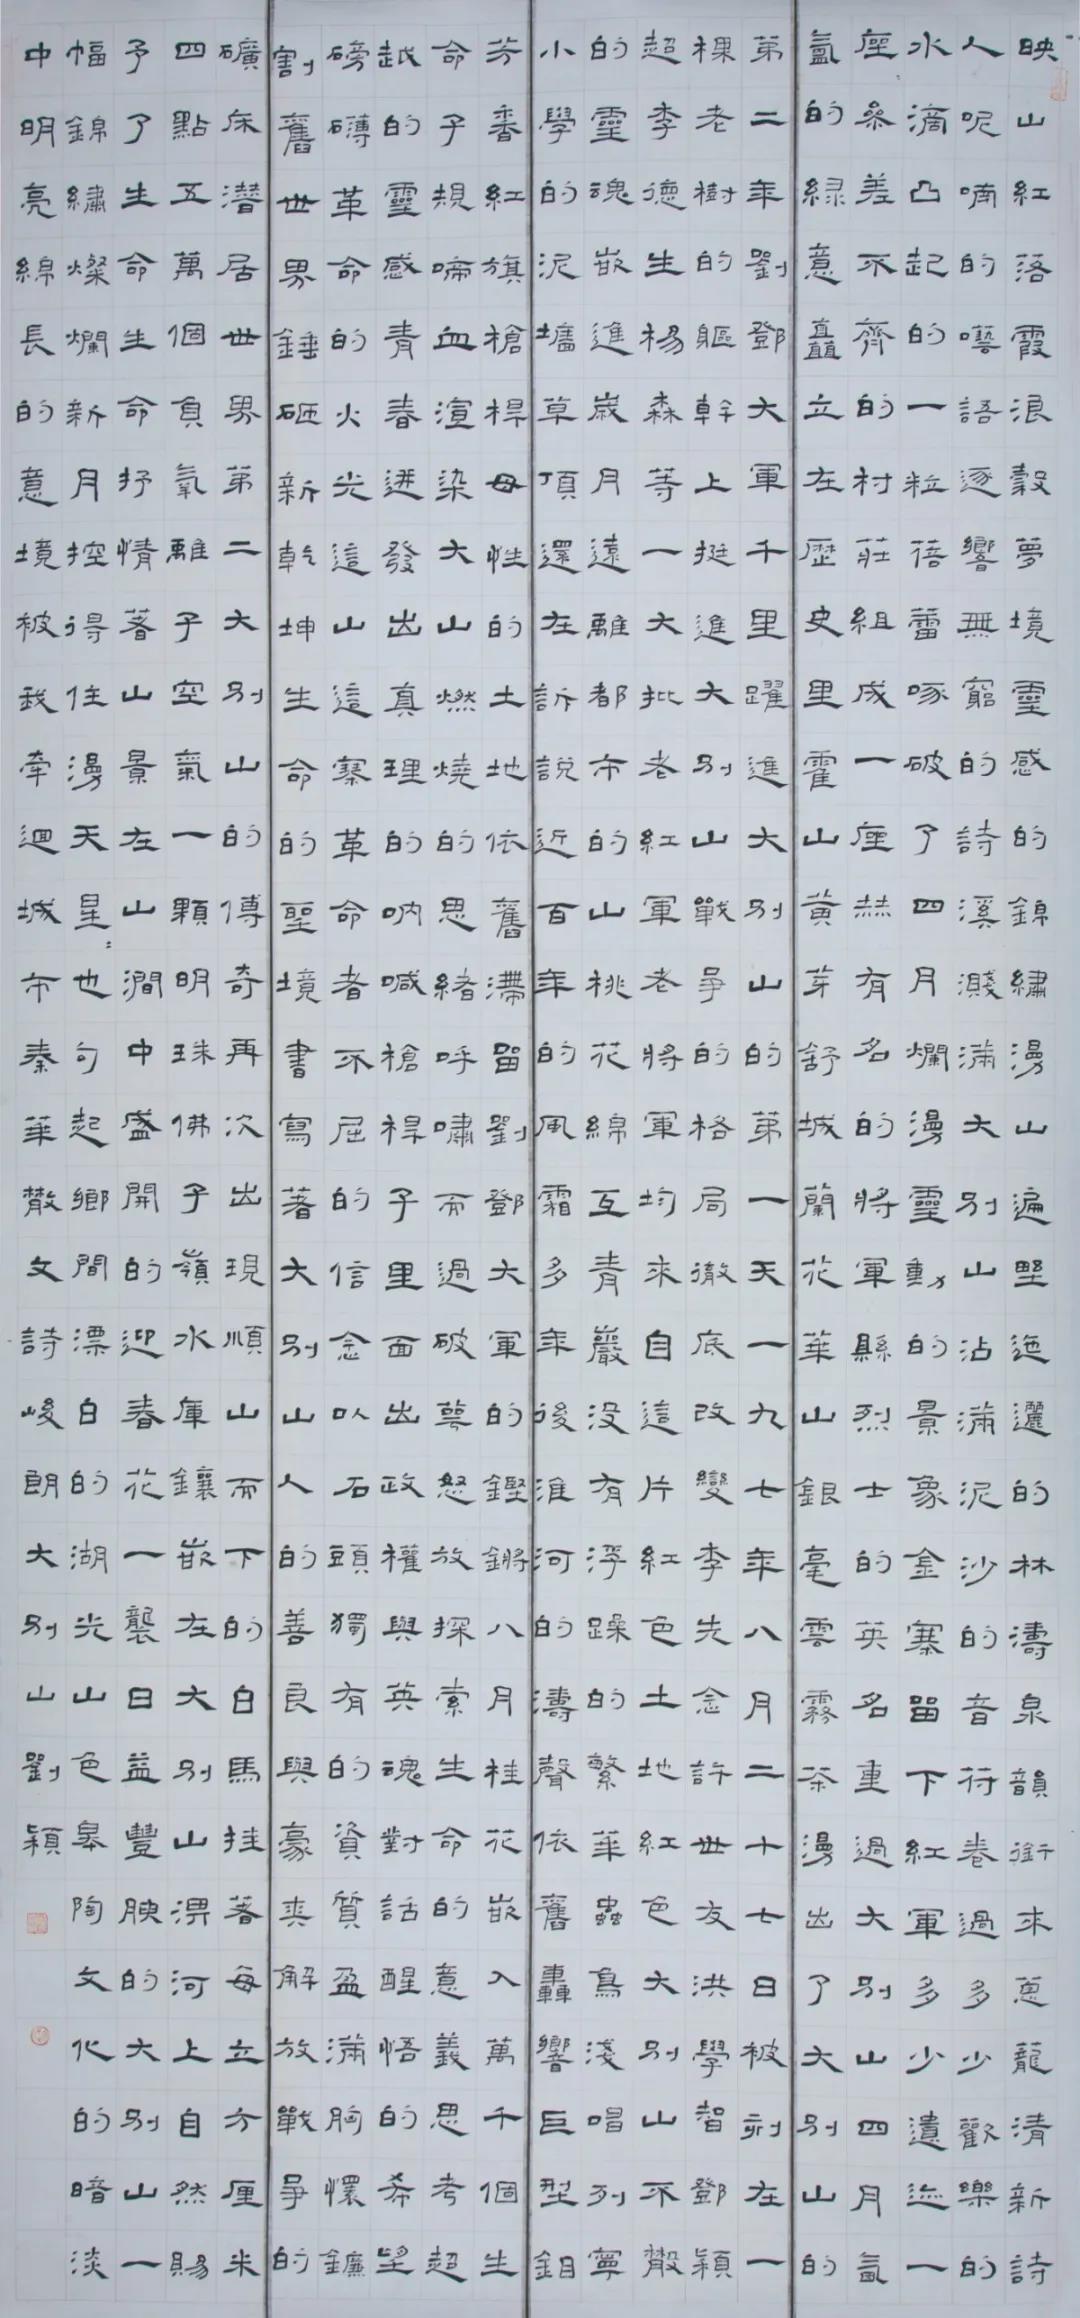 映山紅落霞浪縠夢境靈感的錦繡漫山遍野迤邐的林濤泉韻銜來蔥蘢清新詩
人呢喃的囈語逐響無窮的詩溪濺滿大別山沾滿泥沙的音符卷過多少歡樂的
水滴凸起的一粒蓓蕾啄破了四月爛漫靈動的景象金寨留下紅軍多少遺迹一
座參差不齊的村莊組成一座赫有名的將軍縣烈士的英名重過大別山四月氤
氳的綠意矗立在歷史里霍山黃芽舒城蘭花華山銀毫雲霧茶漫出了大別山的
第二年劉鄧大軍千里躍進大別山的第一天一九七年八月二十七日被刻在一
棵老樹的軀幹上挺進大別山戰爭的格局徹底改變李先念許世友洪學智鄧穎
超李德生楊森等一大批老紅軍老將軍均來自這片紅色土地紅色大別山不散
的靈魂嵌進歲月遠離都市的山桃花綿亙青巖沒有浮躁的繁華蟲鳥淺唱列寧
小學的泥墻草頂還在訴說近百年的風霜多年後淮河的濤聲依舊轟響巨型鉬
芳香紅旗槍桿母性的土地依舊滯留劉鄧大軍的鏗鏘八月桂花嵌入萬千個生
命子規啼血渲染大山燃燒的思緒呼嘯而過破萼怒放探索生命的意義思考超
越的靈感青春迸發出真理的吶喊槍桿子里面出政權與英魂對話醒悟的希望
磅礴革命的火光這山這寨革命者不屈的信念以石頭獨有的資質盈滿胸懷鐮
割舊世界錘砸新乾坤生命的聖境書寫著大別山人的善良與豪爽解放戰爭的
礦床潛居世界第二大別山的傳奇再次出現順山而下的白馬挂著每立方厘米
四點五萬個負氧離子空氣一顆明珠佛子嶺水庫鑲嵌在大別山淠河上自然賜
予了生命生命抒情著山景在山澗中盛開的迎春花一襲日益豐腴的大別山一
幅錦繡燦爛新月控得住漫天星〻也勾起鄉間漂白的湖光山色皋陶文化的暗淡
中明亮綿長的意境被我牽迴城市秦華散文詩峻朗大別山劉穎